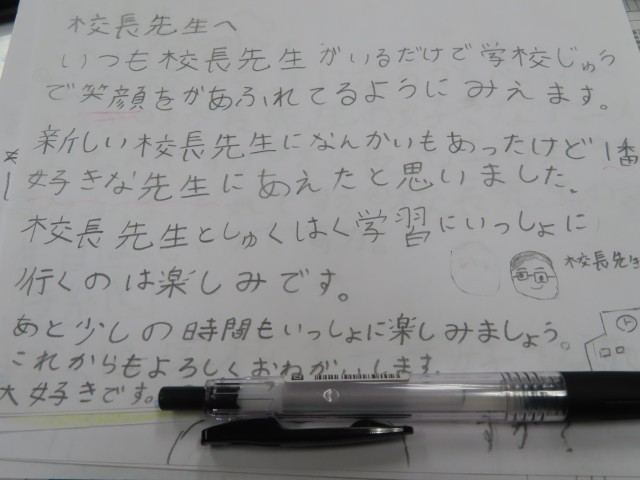 校長先生へ
いつも校長先生がいるだけで学校じゅう
で笑顔をがあふれてるようにみえます。
新しい校長先生になんかいもあったけど1番
好きな先生にあえたと思いました。
校長先生としゅくはく学習にいっしょに
行くのは楽しみです。
校長先生
あと少しの時間もいっしょに楽しみましょう。
これからもよろしくおねがいします。
大好きです。